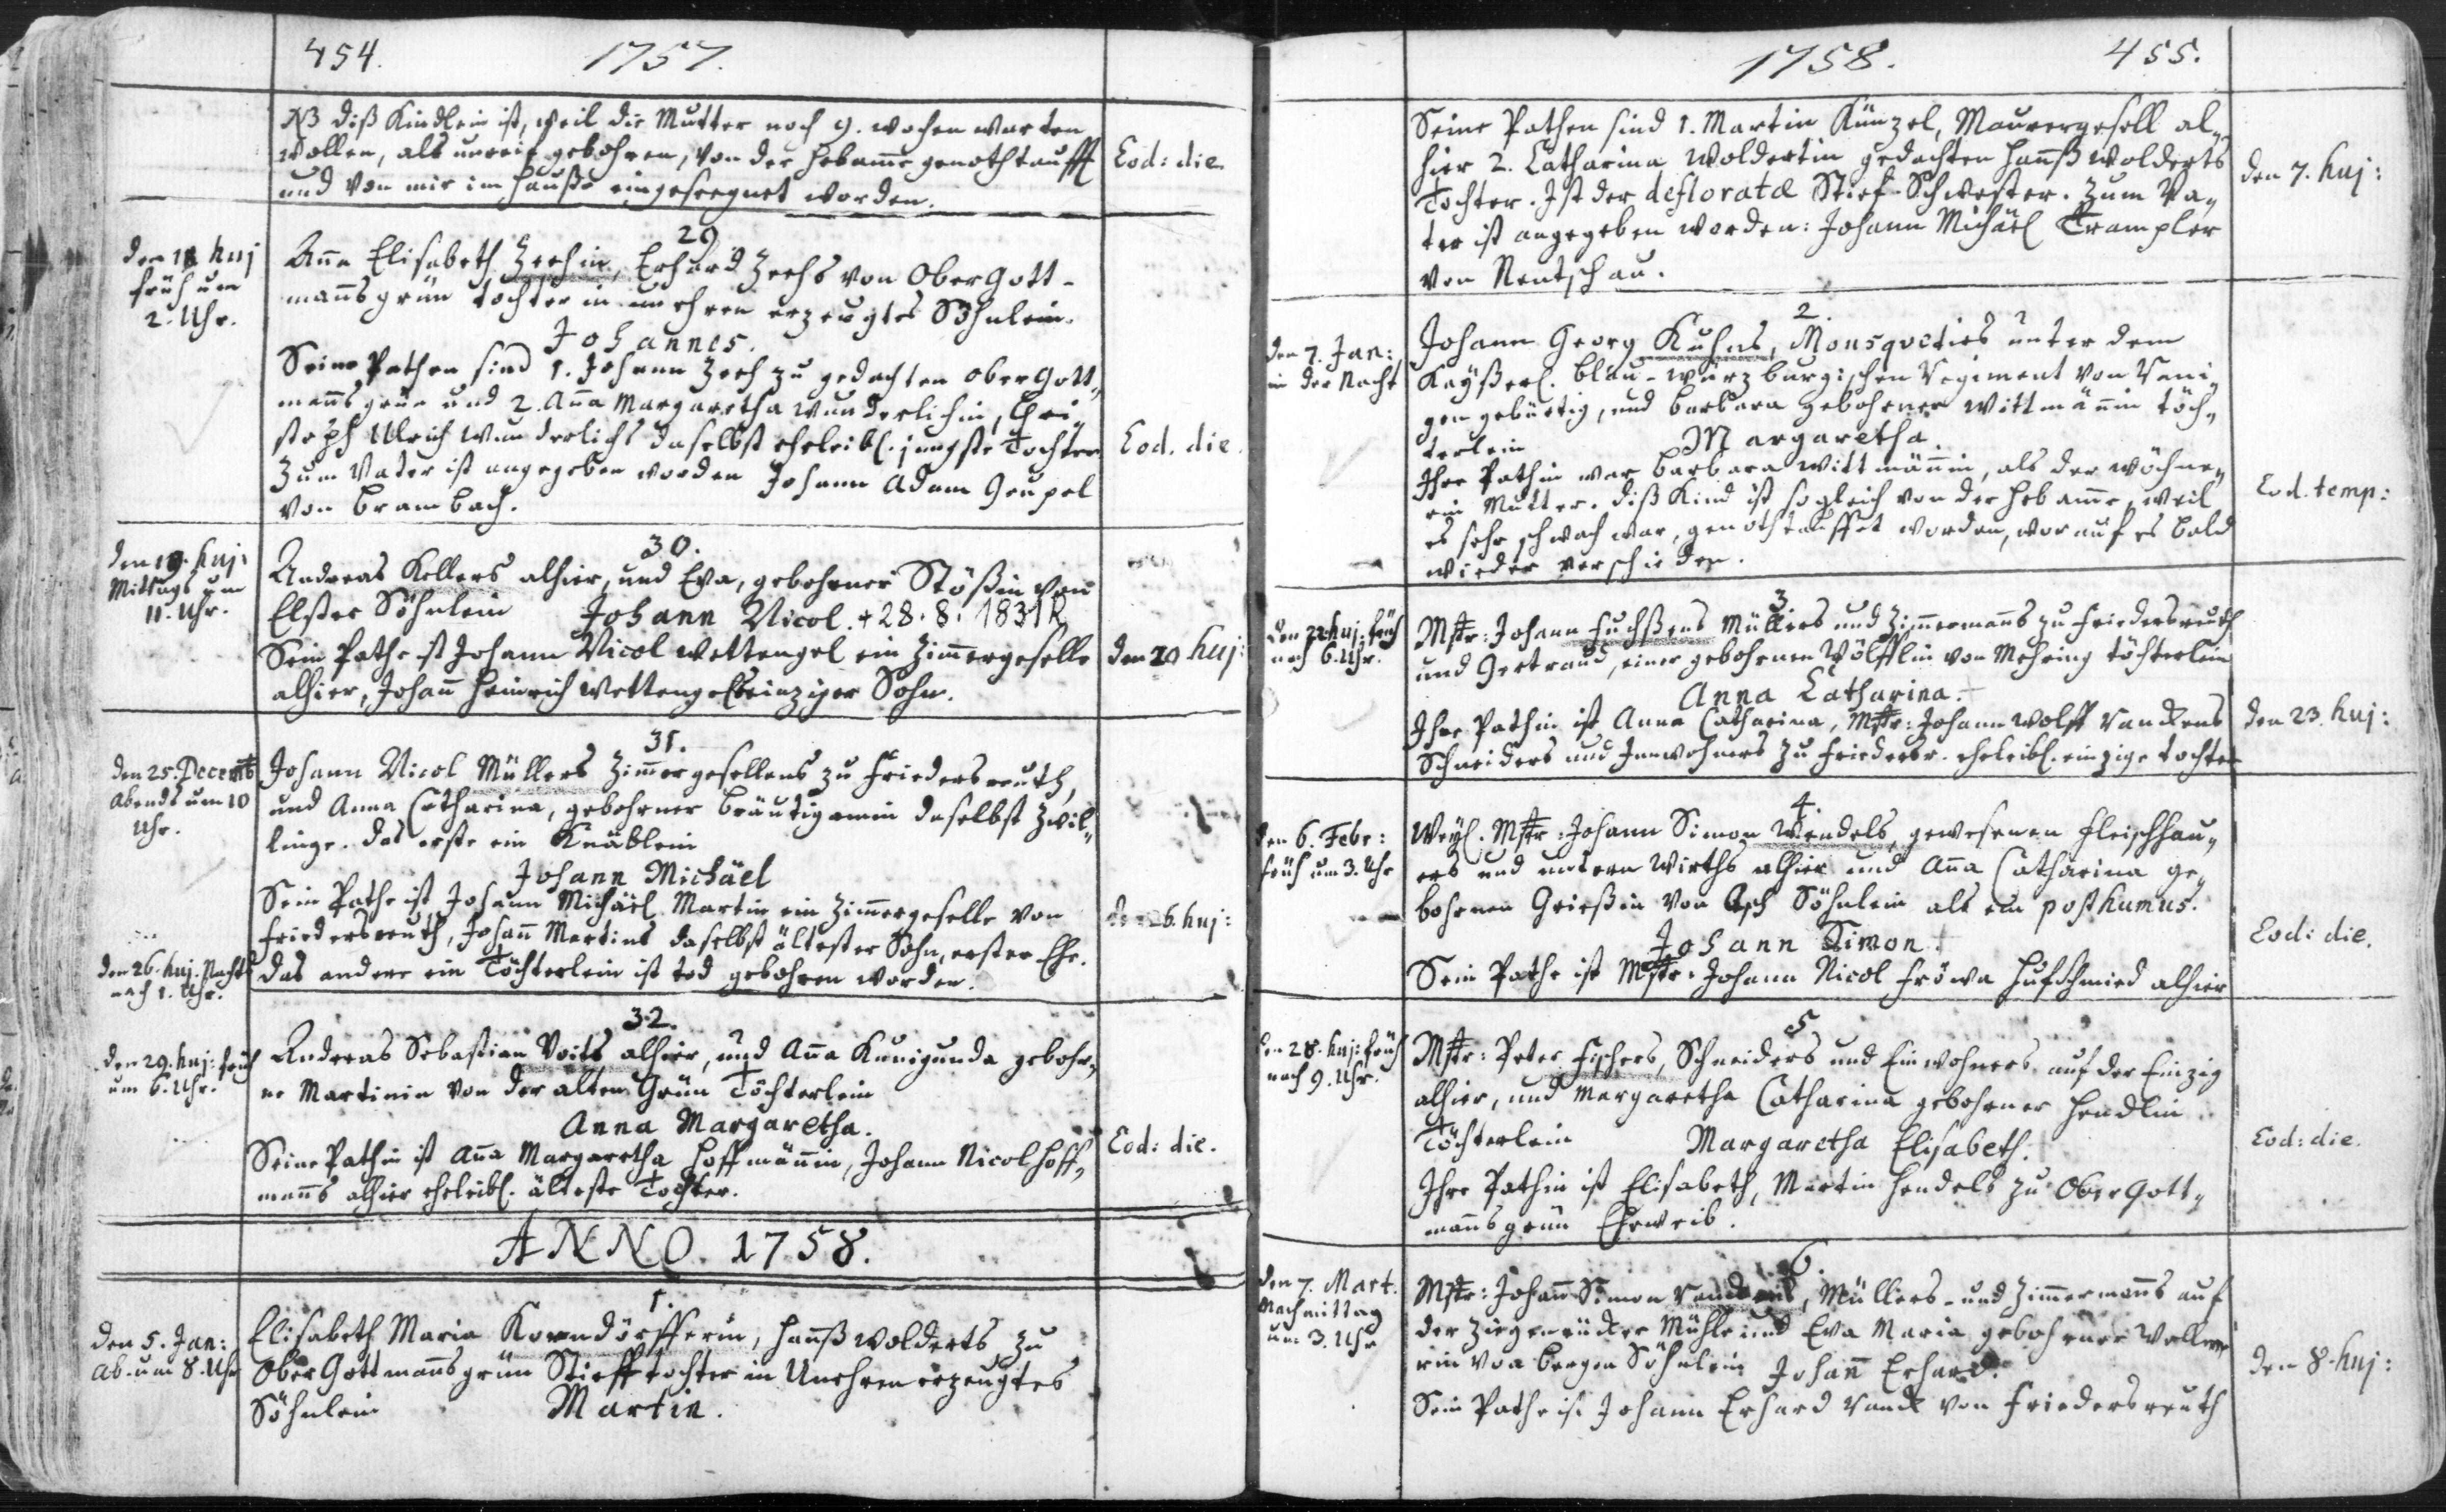 454. 1757.
NB diß Kindlein ist, weil die Mutter noch 9. wochen warten
sollen, als unreif gebohren, von der Hebame genothtaufft
und von mir im Hauße eingesegnet worden.
Eod: die.
29
den 18 huj
früh um
2. Uhr.
Aña Elisabeth Zeehin, Erhard Zeehs von OberGott-
mañsgrün tochter in unehren erzeugtes Söhnlein.
Johannes.
Seine Pathen sind 1. Johann Zeeh zu gedachten oberGott-
mañsgrün und 2. Aña Margaretha wunderlichin, Chri-
stoph Ulrich Wunderlichs daselbst eheleibl. jüngste Tochter
Zum Vater ist angegeben worden Johann Adam Geupel
von Brambach.
Eod. die.
30.
den 19. huj:
Mittags um
11. Uhr.
Andreas Kellers alhier, und Eva, gebohrner Stößin von
Elster Söhnlein Johann Nicol. +28.8.1831 R
Sein Pathe ist Johann Nicol Wettengel ein Zimergeselle
alhier, Johañ Heinrich Wettengels einziger Sohn.
den 20 huj:
31.
den 25. Decemb
abends um 10
Uhr.
Johann Nicol Müllers Zimergesellens zu Friedersreuth,
und Anna Catharina, gebohrner Bräutigamin daselbst Zwil-
linge. das erste ein Knäblein
Johann Michäel
Sein Pathe ist Johann Michäel Martin ein Zimergeselle von
Friedersreuth, Johañ Martins daselbst ältester Sohn, erster Ehe.
den 26. huj:
den 26. huj. Nachts
nach 1. Uhr.
das andere ein Töchterlein ist tod gebohren worden.
32.
den 29. huj: früh
um 6. Uhr.
Andreas Sebastian Voits alhier, und Aña Kunigunda gebohr-
ne Martinin von der alten Grün Töchterlein
Anna Margaretha.
Seine Pathin ist Aña Margaretha Hoffmäñin, Johann Nicol Hoff-
mañs alhier eheleibl. älteste Tochter.
Eod: die.
ANNO. 1758.
1.
den 5. Jan:
Ab. um 8. Uhr
Elisabeth Maria Korndörfferin, Hañß Wolderts zu
OberGottmañsgrün Stieftochter in Unehren erzeugtes
Söhnlein Martin.
1758. 455.
Seine Pathen sind 1. Martin Künzel, Maurergesell al-
hier 2. Catharina Woldertin gedachten Hañß Wolderts
Tochter. Ist der defloratæ Stief-Schwester. Zum Va-
ter ist angegeben worden: Johann Michäel Trampler
von Rentschau.
den 7. huj:
2.
den 7. Jan:
in der Nacht
Johann Georg Kuhns, Mousquetirs unter dem
Kayßerl. blau-würzburgischen Regiment von
gen gebürtig, und Barbara gebohrner Wittmäñin töch-
terlein Margaretha.
Ihre Pathin war Barbara Wittmäñin, als der wöchne-
rin Mutter. diß Kind ist sogleich von der Hebame, weil
es sehr schwach war, genothtauffet worden, worauf es bald
wieder verschieden.
Eod. temp:
3
den 22. huj: früh
nach 6. Uhr.
Mstr: Johann Fuchßens Müllers und Zimermañs zu Friedersreuth
und Gertraud, einer gebohrnen Wölfflin von Mehring töchterlein
Anna Catharina.
Ihre Pathin ist Anna Catharina, Mstr: Johann Wolff Panckens
Schneiders und Inwohners zu Friedersr. eheleibl. einzige tochter
den 23. huj:
4.
den 6. Febr:
früh um 3. Uhr
Weyl. Mstr: Johann Simon Wendels, gewesenen Fleischhau-
ers und untern Wirths alhier und Aña Catharina ge-
bohrnen Grießin von Asch Söhnlein als ein posthumus.
Johann Simon.
Sein Pathe ist Mstr: Johann Nicol Fröwa Hufschmied alhier
Eod: die.
5
den 28. huj: früh
nach 9. Uhr.
Mstr: Peter Fischers, Schneiders und Einwohners auf der Einzig
alhier, und Margaretha Catharina gebohrner Hendlin
Töchterlein Margaretha Elisabeth.
Ihre Pathin ist Elisabeth, Martin Hendels zu OberGott-
mañsgrün Eheweib.
Eod: die.
6.
den 7. Mart.
Nachmittag
um 3. Uhr
Mstr: Johañ Simon Panckens, Müllers- und Zimermañs auf
der Ziegenrücker Mühle und Eva Maria gebohrner
rin von Bergen Söhnlein Johañ Erhard.
Sein Pathe ist Johann Erhard Panck von Friedersreuth
den 8. huj: